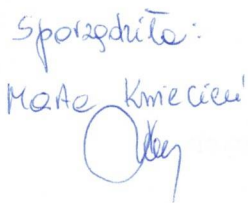 Sporządziła:
Marta Kmiecień